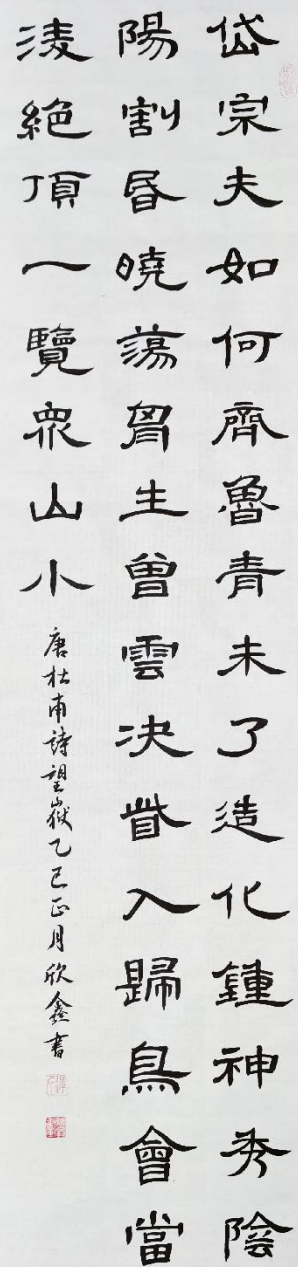 岱宗夫如何齊魯青未了造化鍾神秀陰
陽割昏曉蕩胷生曾雲决眥入歸鳥會當
淩絕頂一覽眾山小
唐杜甫詩望嶽乙巳正月欣鑫書